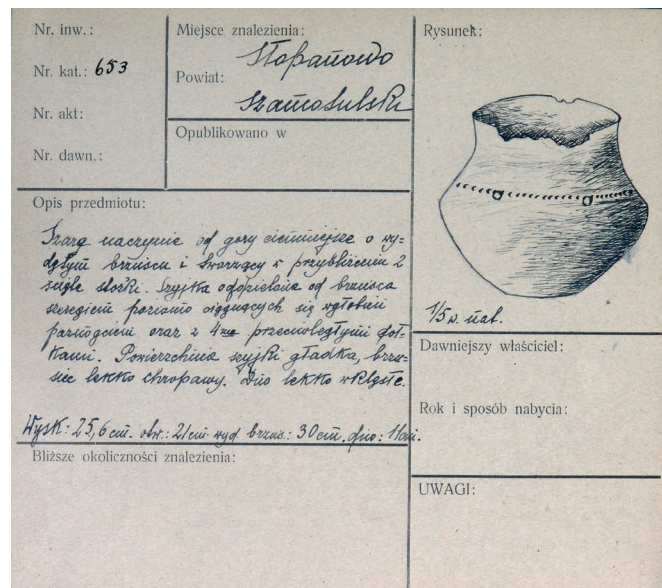 Nr. inw.:
Nr. kat.: 653
Nr. akt:
Nr. dawn.:
Miejsce znalezienia:
Stopanowo
Powiat:
Szamotulski
Opublikowano w
Rysunek:
1/5 w. nat.
Opis przedmiotu:
Szare naczynie od gory ciemniejsze o wy=
dętym brzuścu i tworzący w przybliżeniu 2
stożki. Szyjka oddzielona od brzusca
szeregiem poziomo ciągnących się wgłobień
paznogciem oraz z 4 przeciwległymi doł=
kami. Powierzchnia szyjki gładka, brzu=
siec lekko chropawy. Dno lekko wklęsłe.
Wysk: 25,6 cm. otw.: 21cm. wyd. brzuś.: 30 cm. dno: 11cm.
Bliższe okoliczności znalezienia:
Dawniejszy właściciel:
Rok i sposób nabycia:
UWAGI: